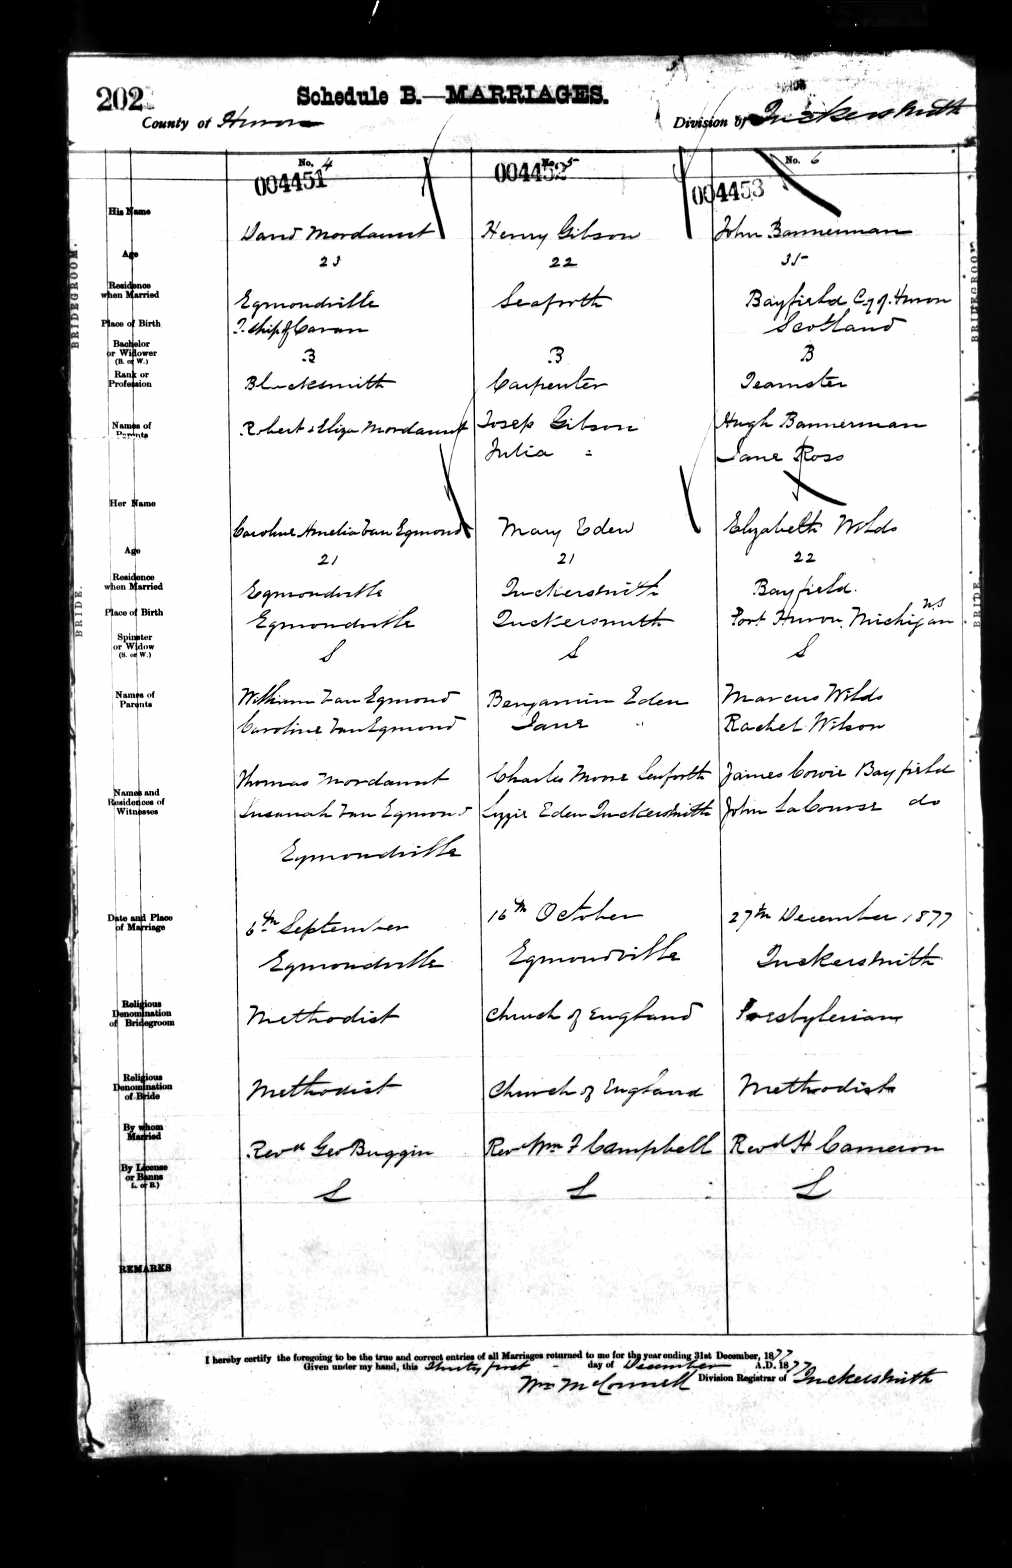 202
Schedule B.—MARRIAGES.
County of Huron
Division of Tuckersmith
No. 4
004451
No. 5
004452
No. 6
004453
BRIDEGROOM.
His Name
David Mordaunt
Henry Gibson
John Bannerman
Age
23
22
35
Residence when Married
Egmondville
Seaforth
Bayfield Cy of Huron
Place of Birth
T.ship of Cavan
Scotland
Bachelor or Widower (B. or W.)
B
B
B
Rank or Profession
Blacksmith
Carpenter
Teamster
Names of Parents
Robert & Eliza Mordaunt
Josep Gibson
Julia "
Hugh Bannerman
Jane Ross
BRIDE.
Her Name
Caroline Amelia Van Egmond
Mary Eden
Elizabeth Wilds
Age
21
21
22
Residence when Married
Egmondville
Tuckersmith
Bayfield.
Place of Birth
Egmondville
Tuckersmith
Port Huron, Michigan US
Spinster or Widow (S. or W.)
S
S
S
Names of Parents
William Van Egmond
Caroline Van Egmond
Benjamin Eden
Jane "
Marcus Wilds
Rachel Wilson
Names and Residences of Witnesses
Thomas Mordaunt
Susanah Van Egmond
Egmondville
Charles Moore Seaforth
Lizzie Eden Tuckersmith
James Cowie Bayfield
John LaCourse do
Date and Place of Marriage
6th September
Egmondville
16th October
Egmondville
27th December 1877
Tuckersmith
Religious Denomination of Bridegroom
Methodist
Church of England
Presbyterian
Religious Denomination of Bride
Methodist
Church of England
Methodist
By whom Married
Revd Geo Buggin
Revd Wm F Campbell
Revd H Cameron
By License or Banns (L. or B.)
L
L
L
REMARKS
I hereby certify the foregoing to be the true and correct entries of all Marriages returned to me for the year ending 31st December, 1877
Given under my hand, this Thirty first day of December A.D. 1877
Wm McConnell Division Registrar of Tuckersmith
BRIDEGROOM
BRIDE